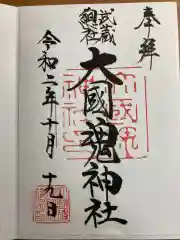 奉拝
武蔵
総社
大國魂神社
令和二年十月十九日